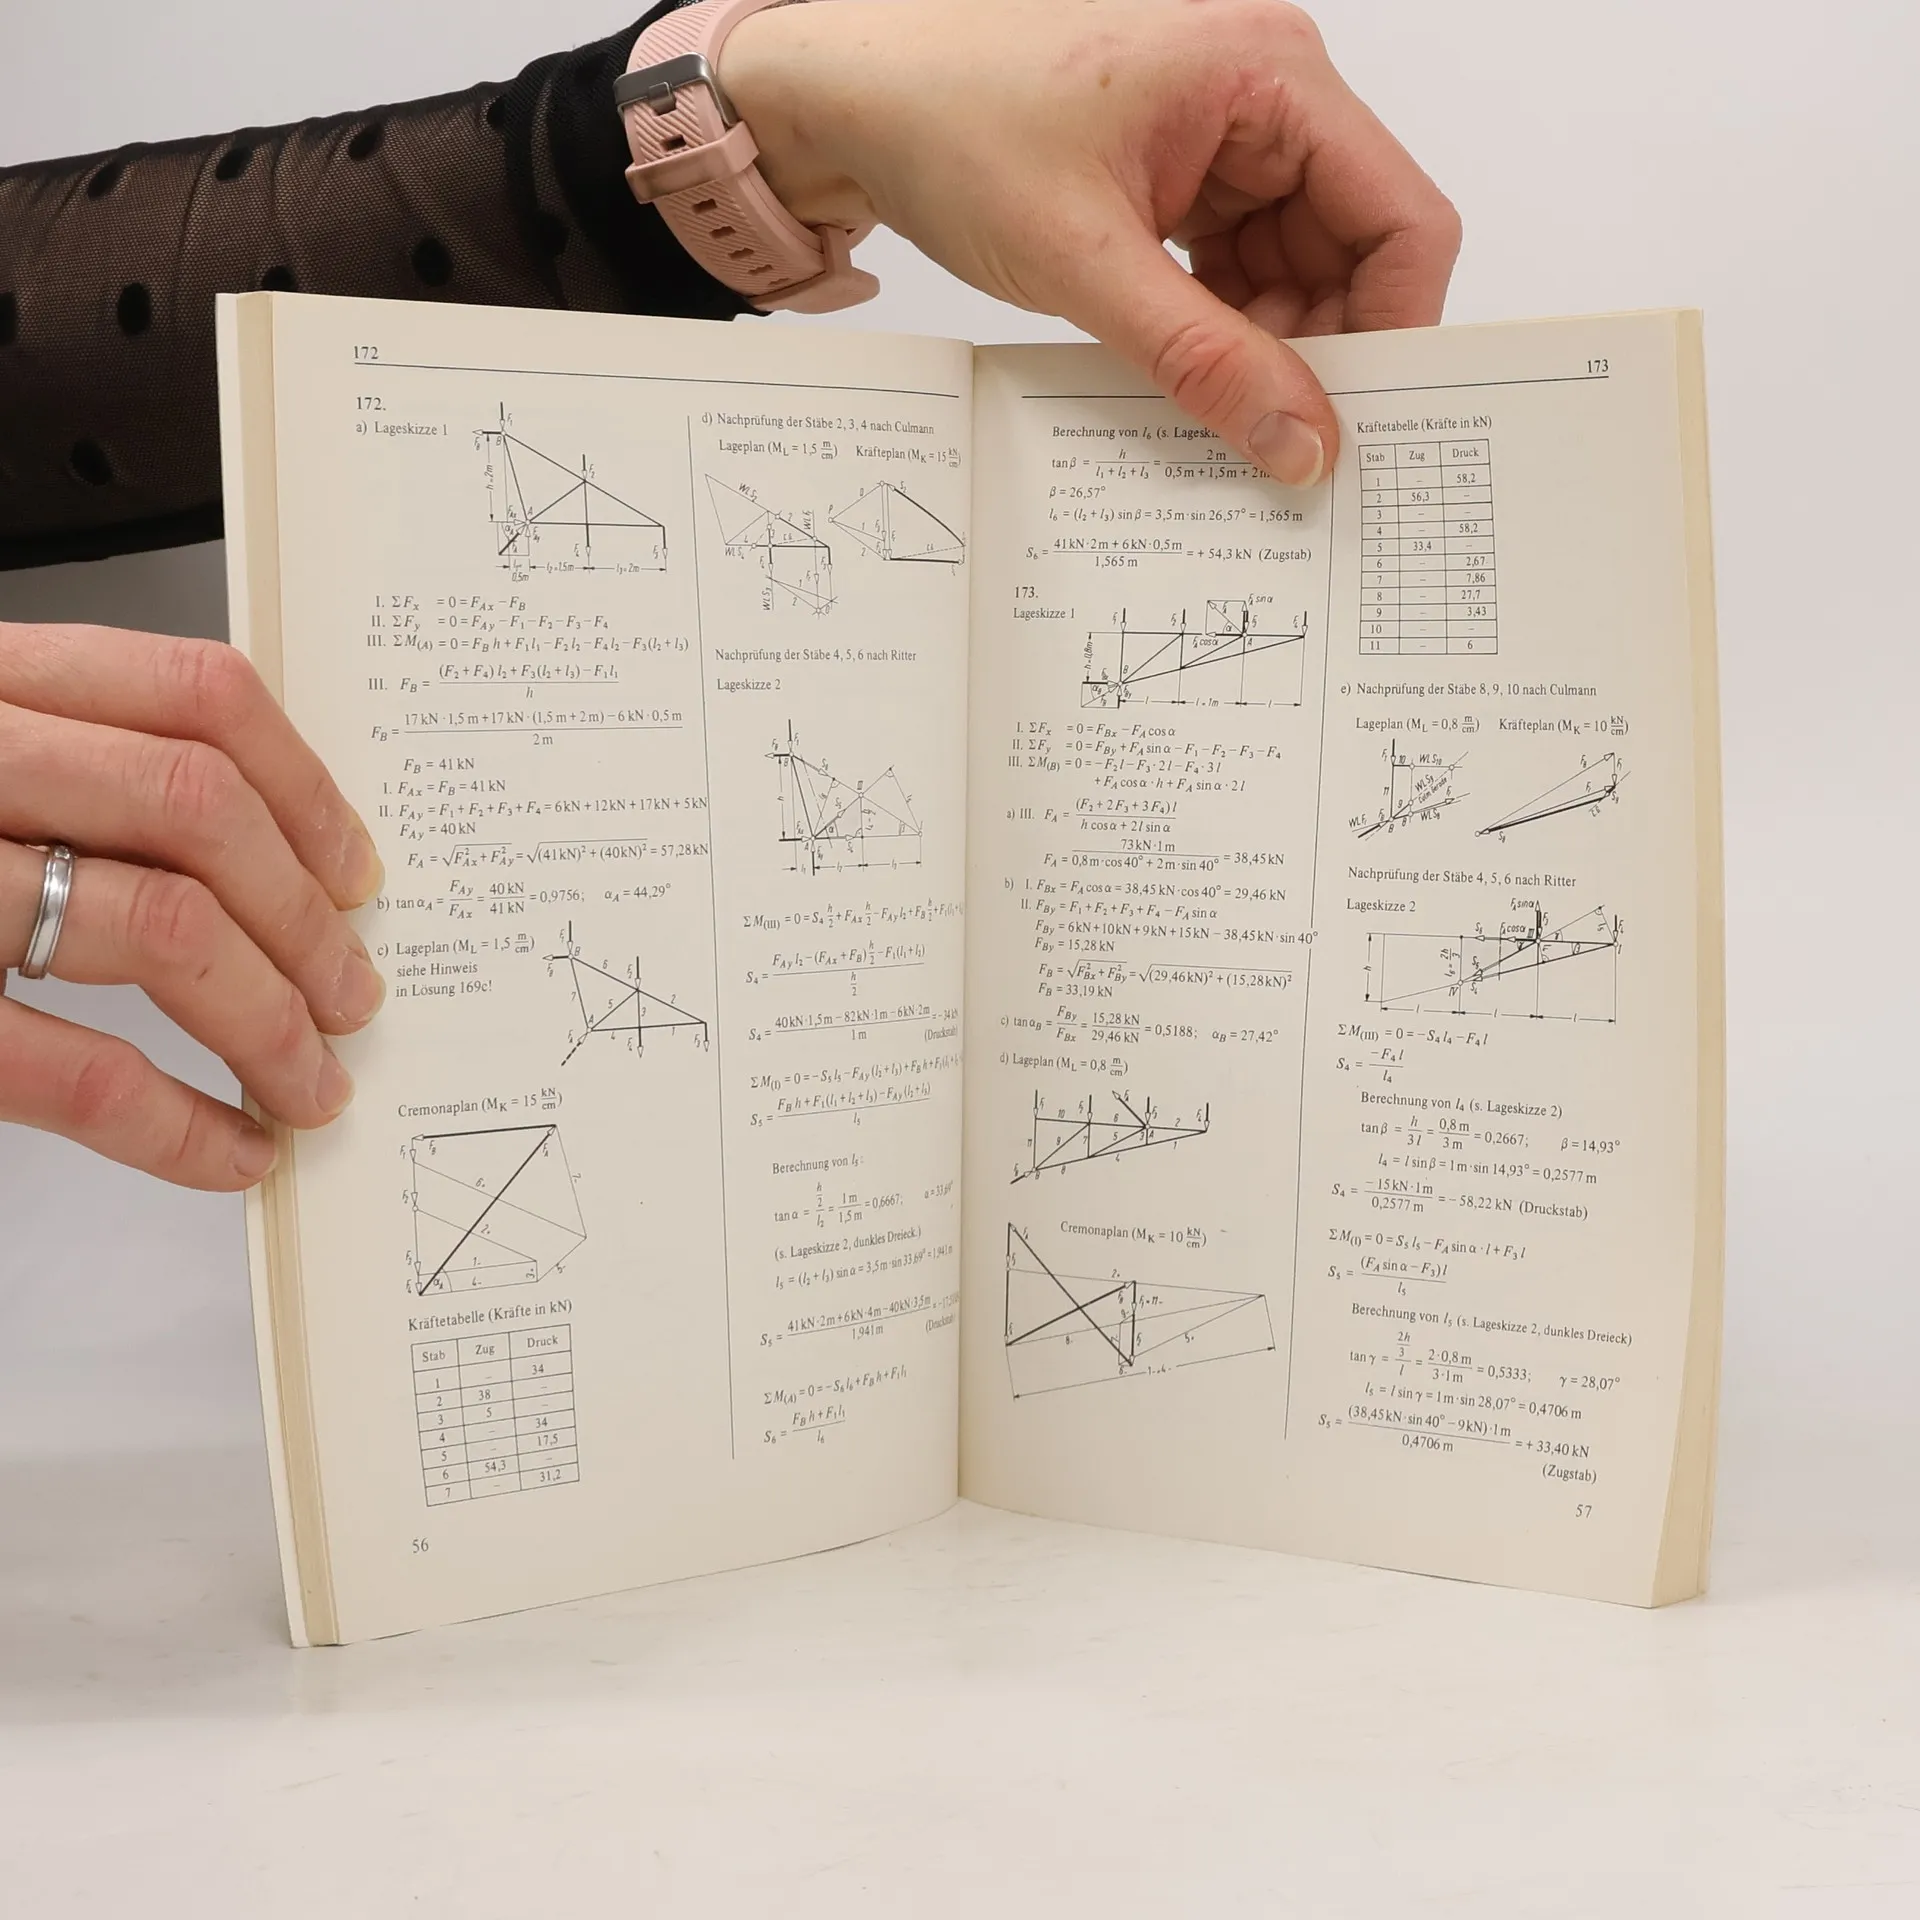 172
172.
a) Lageskizze 1
I. ΣF_x = 0 = F_Ax − F_B
II. ΣF_y = 0 = F_Ay − F_1 − F_2 − F_3 − F_4
III. ΣM_(A) = 0 = F_B h + F_1 l_1 − F_2 l_2 − F_4 l_2 − F_3 (l_2 + l_3)
III. F_B = ((F_2 + F_4) l_2 + F_3 (l_2 + l_3) − F_1 l_1) / h
F_B = (17 kN · 1,5 m + 17 kN · (1,5 m + 2 m) − 6 kN · 0,5 m) / 2 m
F_B = 41 kN
I. F_Ax = F_B = 41 kN
II. F_Ay = F_1 + F_2 + F_3 + F_4 = 6 kN + 12 kN + 17 kN + 5 kN
F_Ay = 40 kN
F_A = √(F_Ax² + F_Ay²) = √((41 kN)² + (40 kN)²) = 57,28 kN
b) tan α_A = F_Ay / F_Ax = 40 kN / 41 kN = 0,9756; α_A = 44,29°
c) Lageplan (M_L = 1,5 m/cm)
siehe Hinweis
in Lösung 169c!
Cremonaplan (M_K = 15 kN/cm)
Kräftetabelle (Kräfte in kN)
Stab Zug Druck
1 – 34
2 38 –
3 5 –
4 – 34
5 – 17,5
6 54,3 –
7 – 31,2
56
d) Nachprüfung der Stäbe 2, 3, 4 nach Culmann
Lageplan (M_L = 1,5 m/cm) Kräfteplan (M_K = 15 kN/cm)
Nachprüfung der Stäbe 4, 5, 6 nach Ritter
Lageskizze 2
ΣM_(III) = 0 = S_4 h/2 + F_Ax h/2 − F_Ay l_2 + F_B h/2 + F_1 (l_1 + l_2)
S_4 = (F_Ay l_2 − (F_Ax + F_B) h/2 − F_1 (l_1 + l_2)) / (h/2)
S_4 = (40 kN · 1,5 m − 82 kN · 1 m − 6 kN · 2 m) / 1 m = − 34 kN
(Druckstab)
ΣM_(I) = 0 = − S_5 l_5 − F_Ay (l_2 + l_3) + F_B h + F_1 (l_1 + l_2
S_5 = (F_B h + F_1 (l_1 + l_2 + l_3) − F_Ay (l_2 + l_3)) / l_5
Berechnung von l_5:
tan α = (h/2) / l_2 = 1 m / 1,5 m = 0,6667; α = 33,69°
(s. Lageskizze 2, dunkles Dreieck.)
l_5 = (l_2 + l_3) sin α = 3,5 m · sin 33,69° = 1,941 m
S_5 = (41 kN · 2 m + 6 kN · 4 m − 40 kN · 3,5 m) / 1,941 m
(Druckstab)
ΣM_(A) = 0 = − S_6 l_6 + F_B h + F_1 l_1
S_6 = (F_B h + F_1 l_1) / l_6
173
Berechnung von l_6 (s.
tan β = h / (l_1 + l_2 + l_3) = 2 m / 0,5 m + 1,5 m +
β = 26,57°
l_6 = (l_2 + l_3) sin β = 3,5 m · sin 26,57° = 1,565 m
S_6 = (41 kN · 2 m + 6 kN · 0,5 m) / 1,565 m = + 54,3 kN (Zugstab)
173.
Lageskizze 1
I. ΣF_x = 0 = F_Bx − F_A cos α
II. ΣF_y = 0 = F_By + F_A sin α − F_1 − F_2 − F_3 − F_4
III. ΣM_(B) = 0 = − F_2 l − F_3 · 2 l − F_4 · 3 l
+ F_A cos α · h + F_A sin α · 2 l
a) III. F_A = (F_2 + 2 F_3 + 3 F_4) l / (h cos α + 2 l sin α)
F_A = 73 kN · 1 m / (0,8 m · cos 40° + 2 m · sin 40°) = 38,45 kN
b) I. F_Bx = F_A cos α = 38,45 kN · cos 40° = 29,46 kN
II. F_By = F_1 + F_2 + F_3 + F_4 − F_A sin α
F_By = 6 kN + 10 kN + 9 kN + 15 kN − 38,45 kN · sin 40°
F_By = 15,28 kN
F_B = √(F_Bx² + F_By²) = √((29,46 kN)² + (15,28 kN)²)
F_B = 33,19 kN
c) tan α_B = F_By / F_Bx = 15,28 kN / 29,46 kN = 0,5188; α_B = 27,42°
d) Lageplan (M_L = 0,8 m/cm)
Cremonaplan (M_K = 10 kN/cm)
Kräftetabelle (Kräfte in kN)
Stab Zug Druck
1 – 58,2
2 56,3 –
3 – –
4 – 58,2
5 33,4 –
6 – 2,67
7 – 7,86
8 – 27,7
9 – 3,43
10 – –
11 – 6
e) Nachprüfung der Stäbe 8, 9, 10 nach Culmann
Lageplan (M_L = 0,8 m/cm) Kräfteplan (M_K = 10 kN/cm)
Nachprüfung der Stäbe 4, 5, 6 nach Ritter
Lageskizze 2
ΣM_(III) = 0 = − S_4 l_4 − F_4 l
S_4 = − F_4 l / l_4
Berechnung von l_4 (s. Lageskizze 2)
tan β = h / 3 l = 0,8 m / 3 m = 0,2667; β = 14,93°
l_4 = l sin β = 1 m · sin 14,93° = 0,2577 m
S_4 = − 15 kN · 1 m / 0,2577 m = − 58,22 kN (Druckstab)
ΣM_(I) = 0 = S_5 l_5 − F_A sin α · l + F_3 l
S_5 = (F_A sin α − F_3) l / l_5
Berechnung von l_5 (s. Lageskizze 2, dunkles Dreieck)
tan γ = (2h/3) / l = 2 · 0,8 m / 3 · 1 m = 0,5333; γ = 28,07°
l_5 = l sin γ = 1 m · sin 28,07° = 0,4706 m
S_5 = (38,45 kN · sin 40° − 9 kN) · 1 m / 0,4706 m = + 33,40 kN
(Zugstab)
57